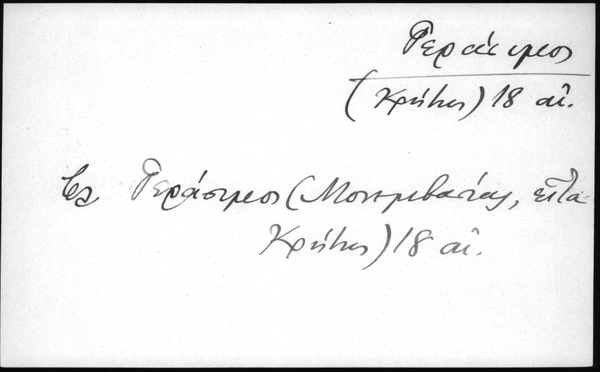 Γεράσιμος
(Κρήτης) 18 αἰ.
βλ Γεράσιμος (Μονεμβασίας, εἶτα
Κρήτης) 18 αἰ.